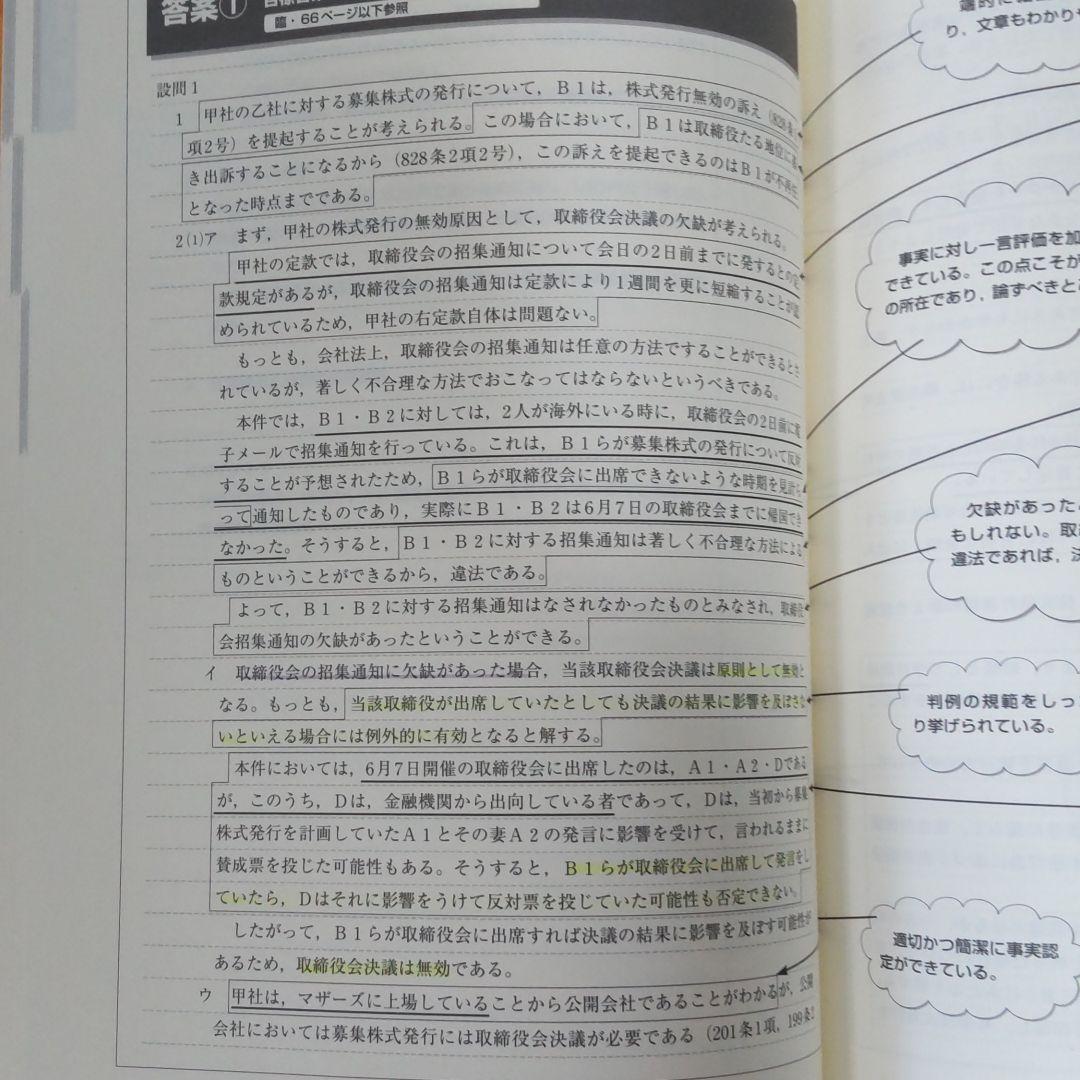 答案①
臨・66ページ以下参照
設問1
1 甲社の乙社に対する募集株式の発行について，B1は，株式発行無効の訴え（828条1
項2号）を提起することが考えられる。この場合において，B1は取締役たる地位に基
き出訴することになるから（828条2項2号），この訴えを提起できるのはB1が不再任
となった時点までである。
2(1)ア まず，甲社の株式発行の無効原因として，取締役会決議の欠缺が考えられる。
甲社の定款では，取締役会の招集通知について会日の2日前までに発するとの定
款規定があるが，取締役会の招集通知は定款により1週間を更に短縮することが認
められているため，甲社の右定款自体は問題ない。
もっとも，会社法上，取締役会の招集通知は任意の方法ですることができるとさ
れているが，著しく不合理な方法でおこなってはならないというべきである。
本件では，B1・B2に対しては，2人が海外にいる時に，取締役会の2日前に電
子メールで招集通知を行っている。これは，B1らが募集株式の発行について反対
することが予想されたため，B1らが取締役会に出席できないような時期を見計ら
って通知したものであり，実際にB1・B2は6月7日の取締役会までに帰国でき
なかった。そうすると，B1・B2に対する招集通知は著しく不合理な方法による
ものということができるから，違法である。
よって，B1・B2に対する招集通知はなされなかったものとみなされ，取締役
会招集通知の欠缺があったということができる。
イ 取締役会の招集通知に欠缺があった場合，当該取締役会決議は原則として無効と
なる。もっとも，当該取締役が出席していたとしても決議の結果に影響を及ぼさな
いといえる場合には例外的に有効となると解する。
本件においては，6月7日開催の取締役会に出席したのは，A1・A2・Dである
が，このうち，Dは，金融機関から出向している者であって，Dは，当初から募集
株式発行を計画していたA1とその妻A2の発言に影響を受けて，言われるままに
賛成票を投じた可能性もある。そうすると，B1らが取締役会に出席して発言をし
ていたら，Dはそれに影響をうけて反対票を投じていた可能性も否定できない。
したがって，B1らが取締役会に出席すれば決議の結果に影響を及ぼす可能性が
あるため，取締役会決議は無効である。
ウ 甲社は，マザーズに上場していることから公開会社であることがわかるが，公開
会社においては募集株式発行には取締役会決議が必要である（201条1項，199条2
り，文章もわかり
事実に対し一言評価を加
できている。この点こそが
の所在であり，論ずべきと
欠缺があったと
もしれない。取
違法であれば，
判例の規範をしっ
り挙げられている。
適切かつ簡潔に事実認
定ができている。